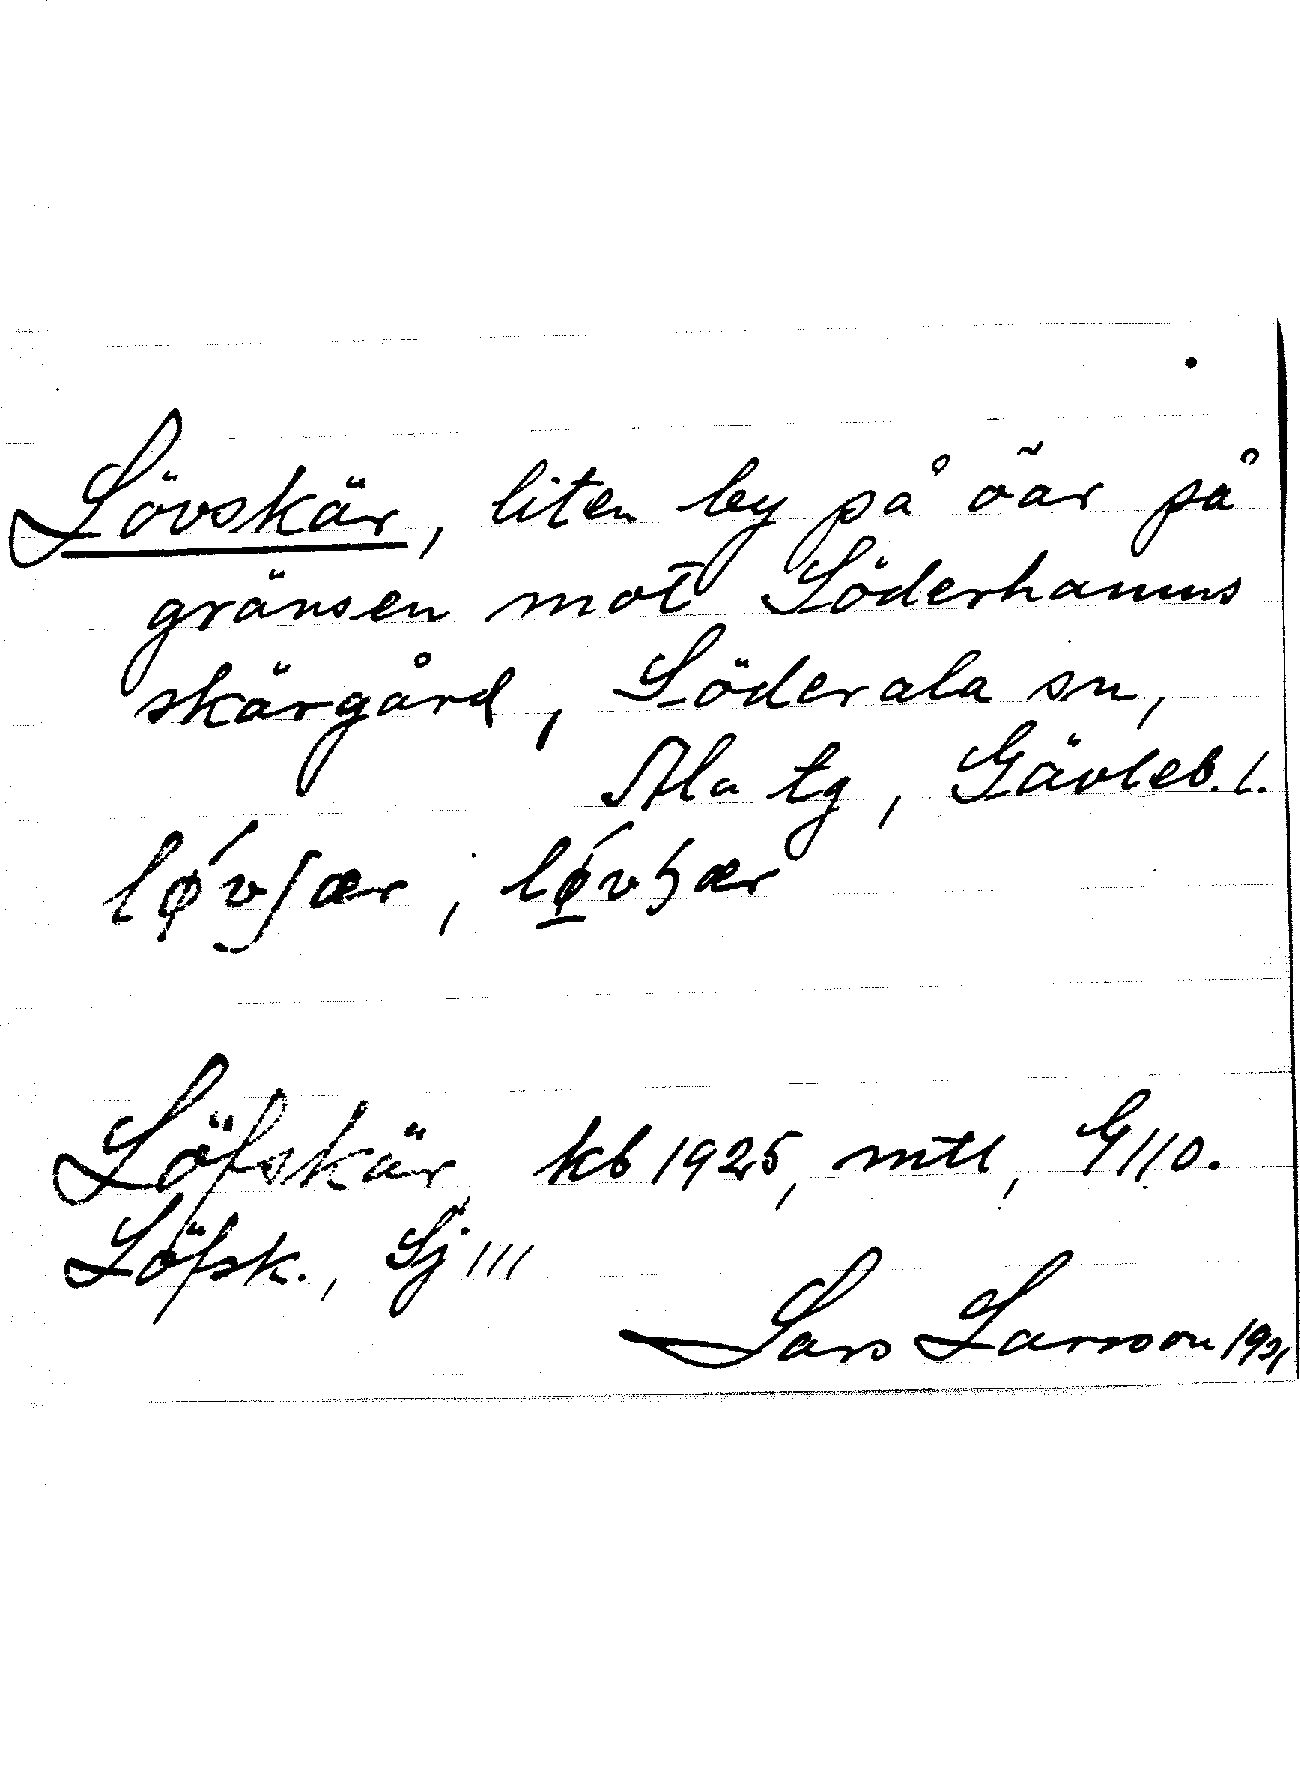 Lövskär, liten by på öar på
gränsen mot Söderhamns
skärgård, Söderala sn,
Ala tg, Gävleb. l.
Löfskär, kb 1925, mtl, G110.
Löfsk., Sj 111
Lars Larsson